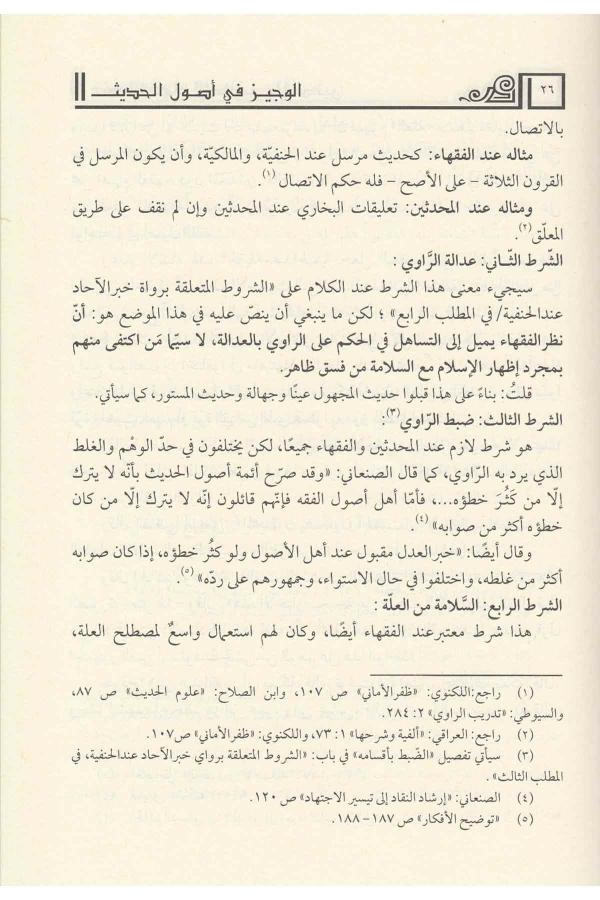 ٢٦
الوجيز في أصول الحديث
بالاتصال.
مثاله عند الفقهاء: كحديث مرسل عند الحنفيّة، والمالكيّة، وأن يكون المرسل في
القرون الثلاثة - على الأصح - فله حكم الاتصال (١).
ومثاله عند المحدثين: تعليقات البخاري عند المحدثين وإن لم نقف على طريق
المعلّق(٢).
الشّرط الثّاني: عدالة الرَّاوي :
سيجيء معنى هذا الشرط عند الكلام على «الشروط المتعلقة برواة خبر الآحاد
عند الحنفية/ في المطلب الرابع» ؛ لكن ما ينبغي أن ينصّ عليه في هذا الموضع هو: أنّ
نظر الفقهاء يميل إلى التساهل في الحكم على الراوي بالعدالة، لا سيّما مَن اكتفى منهم
بمجرد إظهار الإسلام مع السلامة من فسق ظاهر.
قلتُ: بناءً على هذا قبلوا حديث المجهول عينًا وجهالة وحديث المستور، كما سيأتي.
الشرط الثالث: ضبط الرّاوي(٣).
هو شرط لازم عند المحدثين والفقهاء جميعًا، لكن يختلفون في حدّ الوهْم والغلط
الذي يرد به الرّاوي، كما قال الصنعاني: «وقد صرّح أئمة أصول الحديث بأنّه لا يترك
إلّا من كَثُرَ خطؤه...، فأمّا أهل أصول الفقه فإنّهم قائلون إنّه لا يترك إلّا من كان
خطؤه أكثر من صوابه» (٤).
وقال أيضًا: «خبر العدل مقبول عند أهل الأصول ولو كثُر خطؤه، إذا كان صوابه
أكثر من غلطه، واختلفوا في حال الاستواء، وجمهورهم على ردّه» (٥).
الشرط الرابع: السَّلامة من العلّة :
هذا شرط معتبر عند الفقهاء أيضًا، وكان لهم استعمال واسعٌ لمصطلح العلة،
(١) راجع: اللكنوي: «ظفر الأماني» ص ١٠٧، وابن الصلاح: «علوم الحديث» ص ٨٧،
والسيوطي: «تدريب الراوي» ٢: ٢٨٤.
(٢) راجع: العراقي: «ألفية وشرحها» ١: ٧٣، واللكنوي: «ظفر الأماني» ص١٠٧.
(٣) سيأتي تفصيل «الضّبط بأقسامه» في باب: «الشروط المتعلقة برواي خبر الآحاد عند الحنفية، في
المطلب الثالث» .
(٤) الصنعاني: «إرشاد النقاد إلى تيسير الاجتهاد» ص ١٢٠.
(٥) «توضيح الأفكار» ص ١٨٧-١٨٨.